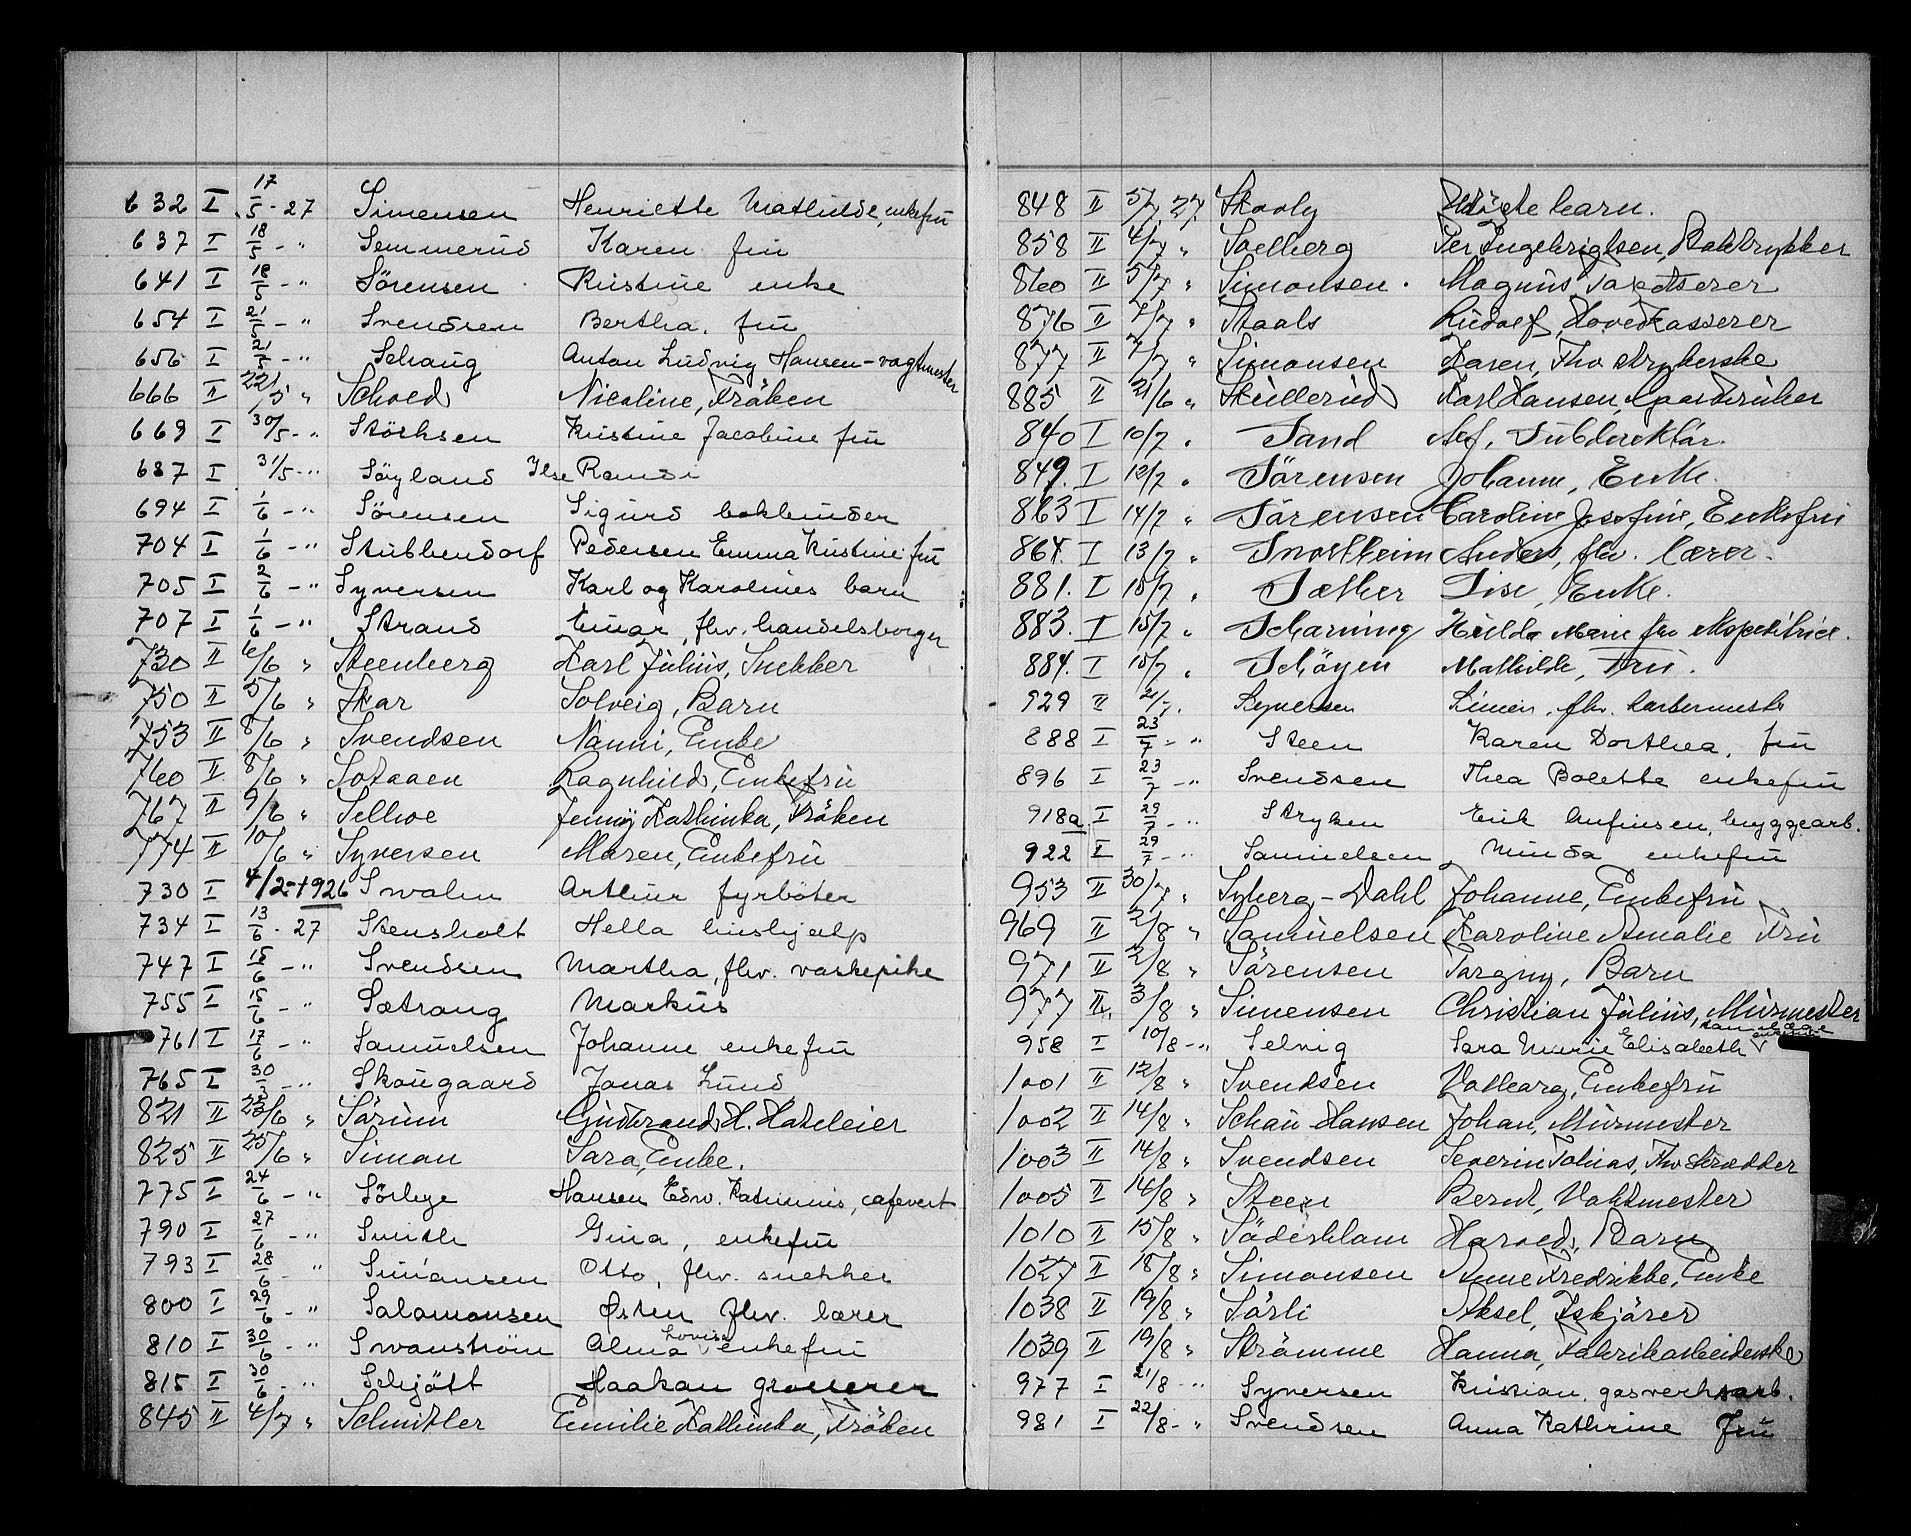 632 I 17/5 - 27 Simensen Henriette Mathilde, enkefru
637 I 18/5 - " Semmerud Karen fru
641 I 18/5 - " Sörensen Kristine enke
654 I 21/5 - " Svendsen Bertha, fru
656 I 21/5 - " Schaug Anton Ludvig Hansen - vagtmester
666 II 22/5 " Schoed Nicoline, Fröken
669 I 30/5 - " Störksen Kristine Jacobine fru
687 I 31/5 - " Söyland Ilse Randi
694 I 1/6 - " Sörensen Sigurd bokbinder
704 I 1/6 - " Stubbendorf Pedersen Emma Kristine fru
705 I 2/6 - " Syversen Karl og Karolines barn
707 I 1/6 - " Strand Einar, fhv. handelsborger
730 II 6/6 " Steenberg Karl Julius, Snekker
750 II 5/6 " Skar Solveig, Barn
753 II 8/6 " Svendsen Nanni, Enke
760 II 8/6 " Sotaaen Ragnhild, Enkefru
767 II 9/6 " Selboe Jenny Kathinka, Fröken
774 II 10/6 " Syversen Maren, Enkefru
730 I 4/2-1926 Swalm Arthur fyrböter
734 I 13/6 - 27 Stensholt Hella hushjælp
747 I 15/6 - " Svendsen Martha, fhv. vaskepike
755 I 15/6 - " Sætrang Markus
761 I 17/6 - " Samuelsen Johanne enkefru
765 I 30/3 - " Skougaard Jonas Lund
821 II 23/6 " Sörum Gudbrand H. Hateleier
825 II 25/6 " Simon Sara, Enke.
775 I 24/6 - " Sörbye Hansen Edw. Katrinius, cafevert
790 I 27/6 - " Smith Gina, enkefru
793 I 28/6 - " Simonsen Otto, fhv. snekker
800 I 29/6 - " Salomonsen Østen fhv. lærer
810 I 30/6 - " Swanström Alma Lovise enkefru
815 I 30/6 - " Schjött Haakon grosserer
845 II 4/7 " Schmitler Emilie Kathinka, Fröken
848 II 5/7 27 Skovly Udöpte barn.
858 II 4/7 " Solberg Per Ingebrigtsen, Boktrykker
860 II 5/7 " Simonsen. Magnus Tapetserer
876 II 7/7 " Staals Rudolf, Hovedkasserer
877 II 7/7 " Simonsen Karen, Fhv strykerske
885 II 21/6 " Skullerud Karl Hansen, Gaardbruker
840 I 10/7 " Sand Alf, Subdirektör.
849. I 12/7 " Sörensen Johanne, Enke.
863 I 14/7 " Sörensen Caroline Josefine, Enkefru
864. I 13/7 " Snortheim Anders, fhv. lærer.
881. I 15/7 " Sæther Lise, Enke.
883. I 15/7 " Scharning Hulda Marie fhv Expeditrice.
884. I 15/7 " Schöyen Mathilde, Fru.
929 II 21/7. Syversen Simen, fhv. Garvermester
888 I 23/7 - " Steen Karen Dorthea, fru
896 I 23/7 - " Svendsen Thea Bolette enkefru
918a I 29/7 - " Stryken Erik Anfinsen, byggearb.
922 I 29/7 - " Samuelsen Minda enkefru
953 II 30/7 " Syberg-Dahl Johanne, Enkefru
969 II 2/8 " Samuelsen Karoline Amalie Fru
971 II 2/8 " Sörensen Torgny, Barn
977 II. 3/8 " Simensen Christian Julius, Murmester
958 I 10/8 - " Selvig Sara Marie Elisabeth
1001 II 12/8 " Svendsen Valborg, Enkefru
1002 II 14/8 " Schau-Hansen Johan, Murmester
1003 II 14/8 " Svendsen Severin Tobias, Fhv Skrædder
1005 II 14/8 " Steen Bernt, Vaktmester
1010 II 15/8 " Söderblom Harold, Barn
1027 II 18/8 " Simonsen Anne Fredrikke, Enke
1038 II 19/8 " Sörli Aksel, Iskjörer
1039 II 19/8 " Strömme Hanna, Fabrikarbeiderske
977 I 21/8 - " Syversen Kristian, gasverksarb.
981 I 22/8 - " Svendsen Anna Kathrine Fru